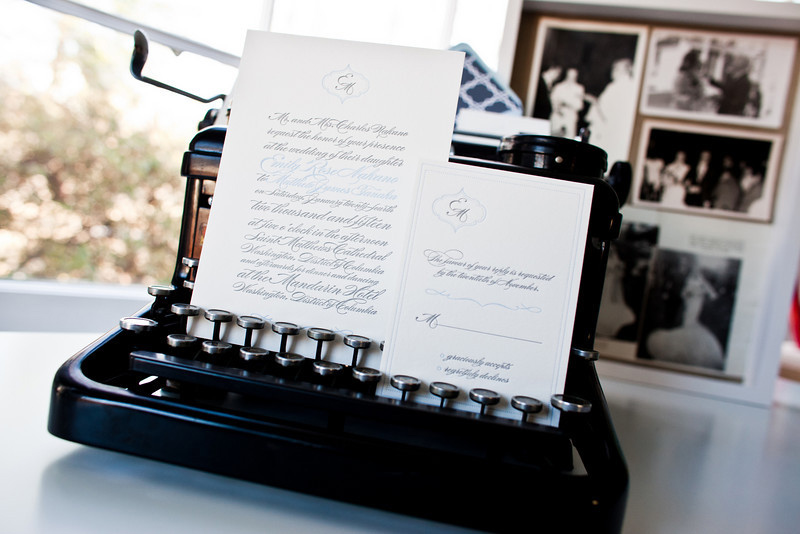 E
M
Mr. and Mrs. Charles
request the honor of your presence
at the wedding of their daughter
Emily Rose
to
on Saturday, January twenty-fourth
two thousand and fifteen
at five o'clock in the afternoon
Saint Matthews Cathedral
Washington, District of Columbia
and afterwards for dinner and dancing
at the Mandarin Hotel
Washington, District of Columbia
E
M
The favour of your reply is requested
by the twentieth of November.
M
graciously accepts
regretfully declines